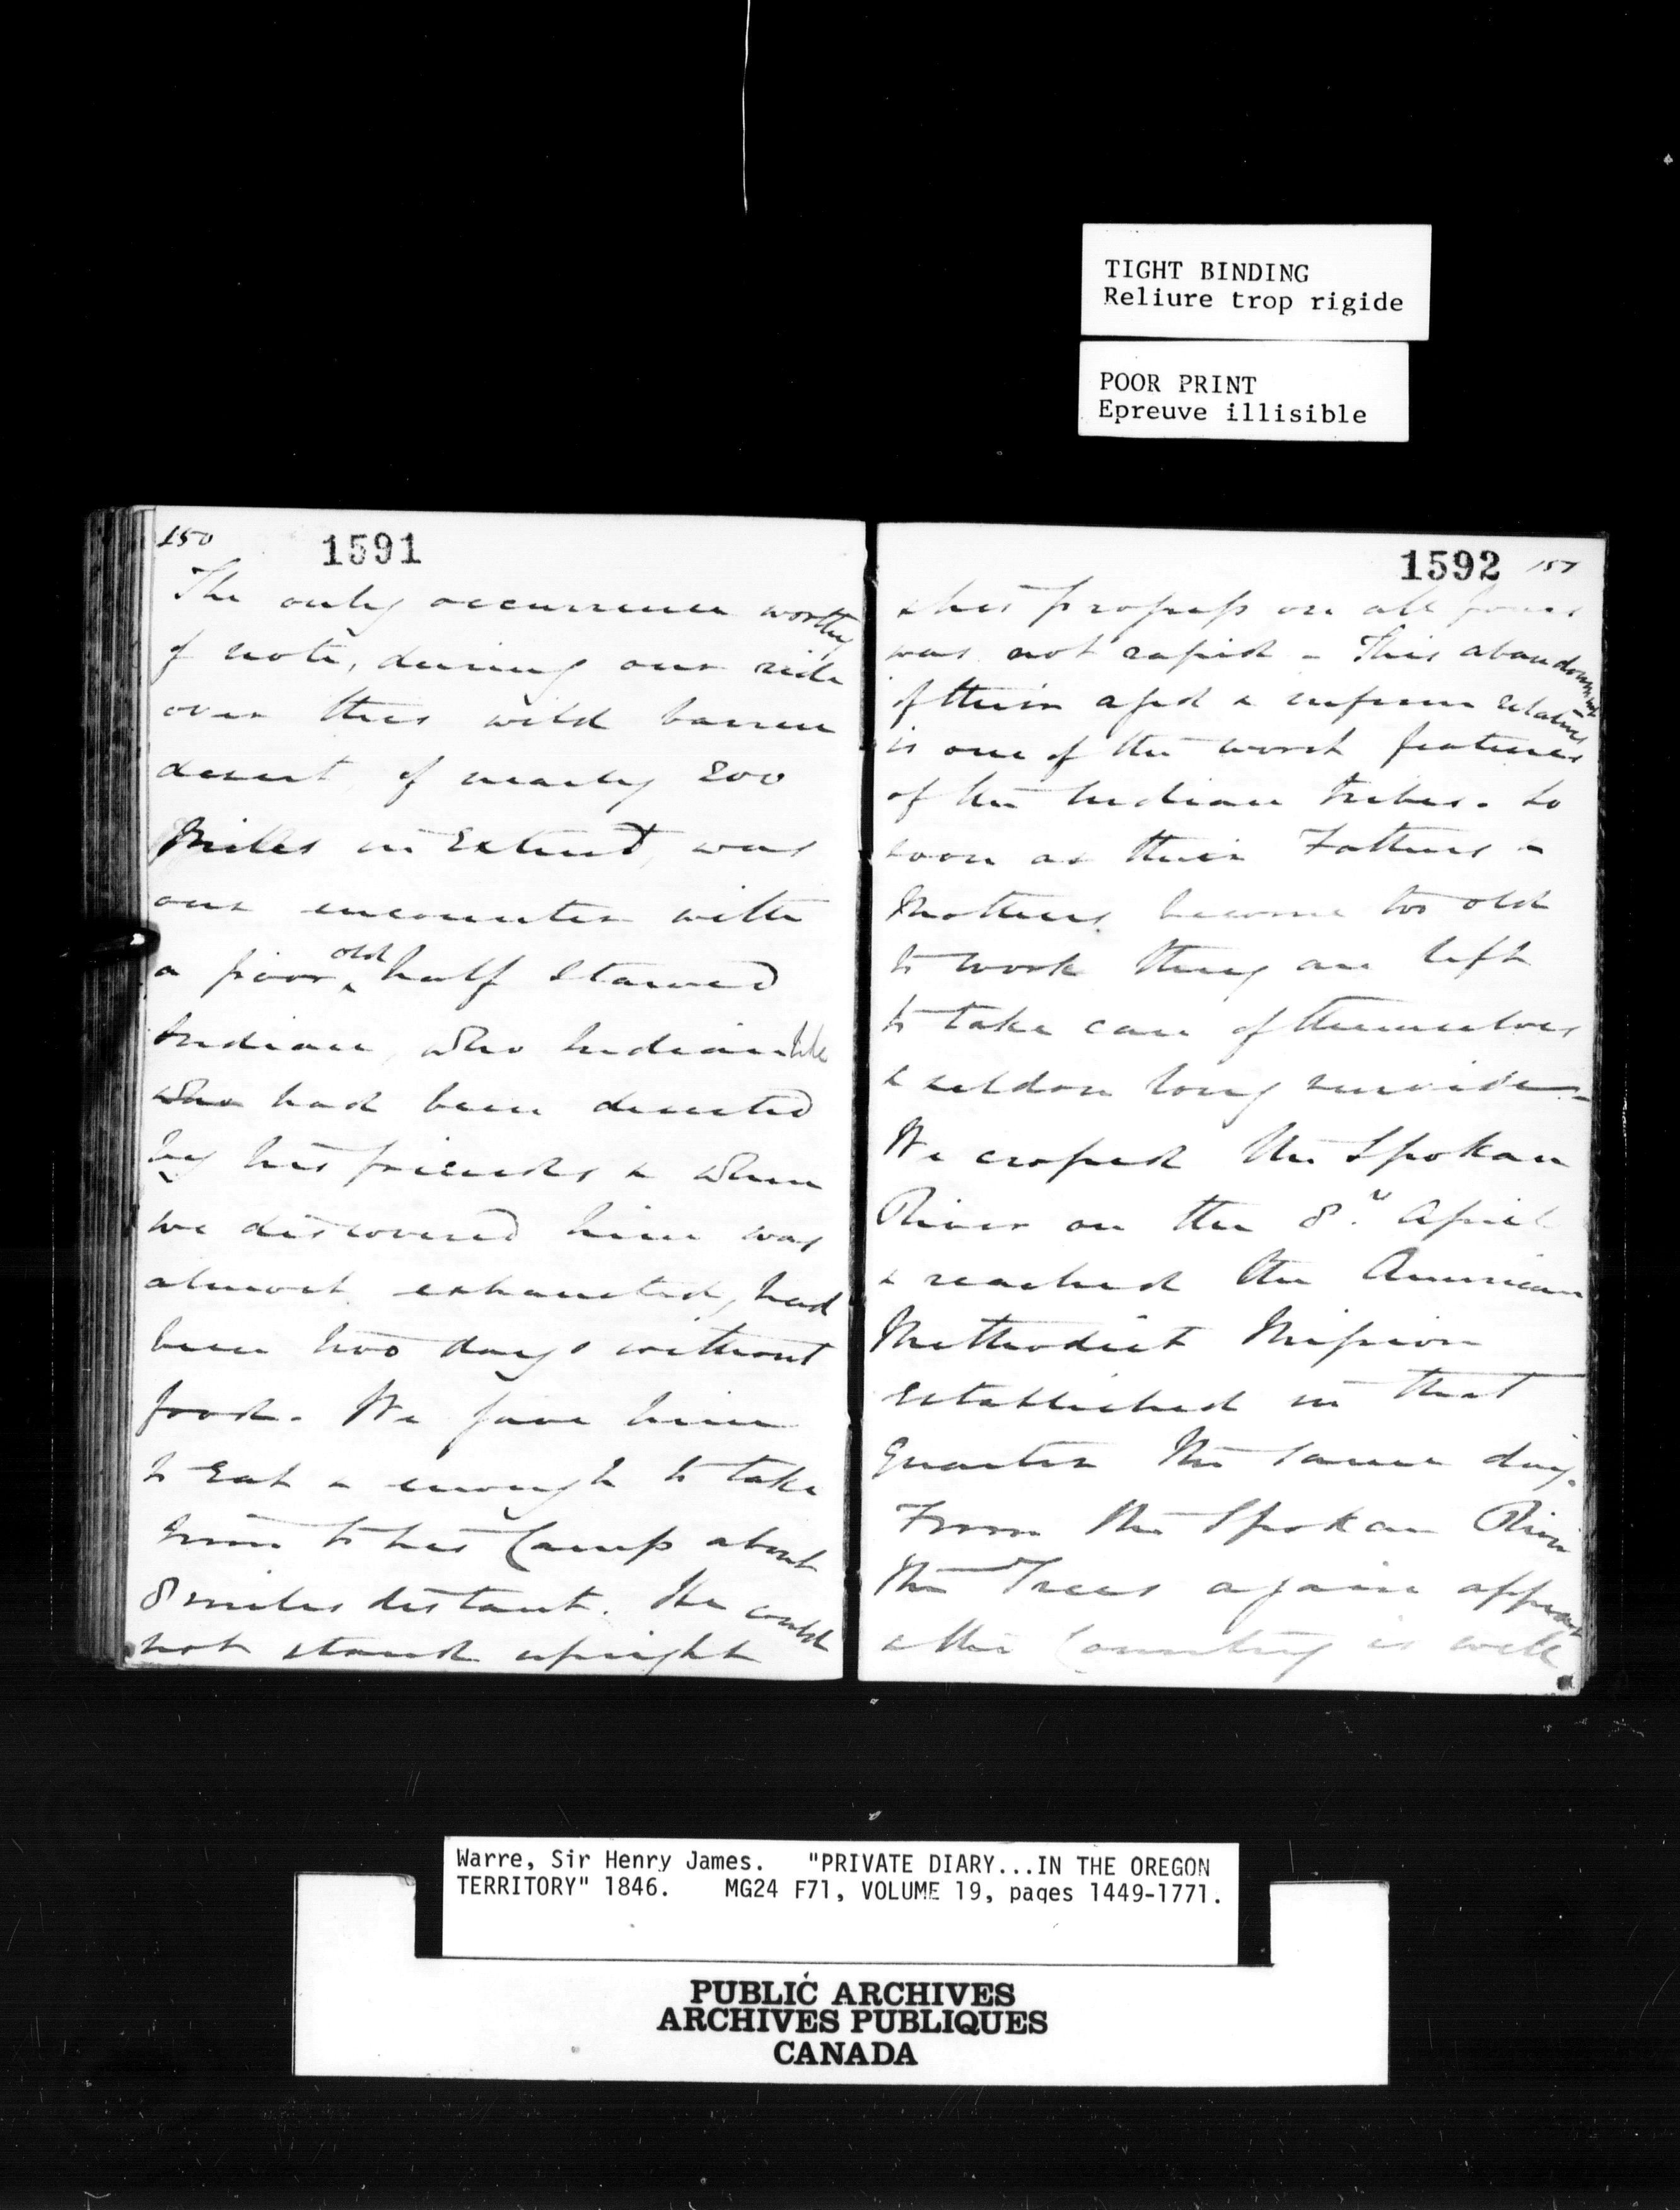 TIGHT BINDING
Reliure trop rigide
POOR PRINT
Epreuve illisible
150
1591
The only occurrence worthy
of note, during our ride
over this wild barren
desert of nearly 200
Miles in Extent, was
our encounter with
a poor old half starved
Indian, who Indian like
who had been deserted
by his friends & when
we discovered him was
almost exhausted, had
been two days without
food. We gave him
to Eat & enough to take
him to his Camp about
8 miles distant. He could
not stand upright
1592
151
& his progress on all fours
was not rapid - This abandonment
of their aged & infirm relatives
is one of the worst features
of the Indian tribes. So
soon as their Fathers &
Mothers become too old
to work they are left
to take care of themselves
& seldom long survive -
We crossed the Spokan
River on the 8th April
& reached the American
Methodist Mission
established in that
Quarter the same day.
From the Spokan River
the Trees again appear
& the Country is well
Warre, Sir Henry James. "PRIVATE DIARY...IN THE OREGON
TERRITORY" 1846. MG24 F71, VOLUME 19, pages 1449-1771.
PUBLIC ARCHIVES
ARCHIVES PUBLIQUES
CANADA